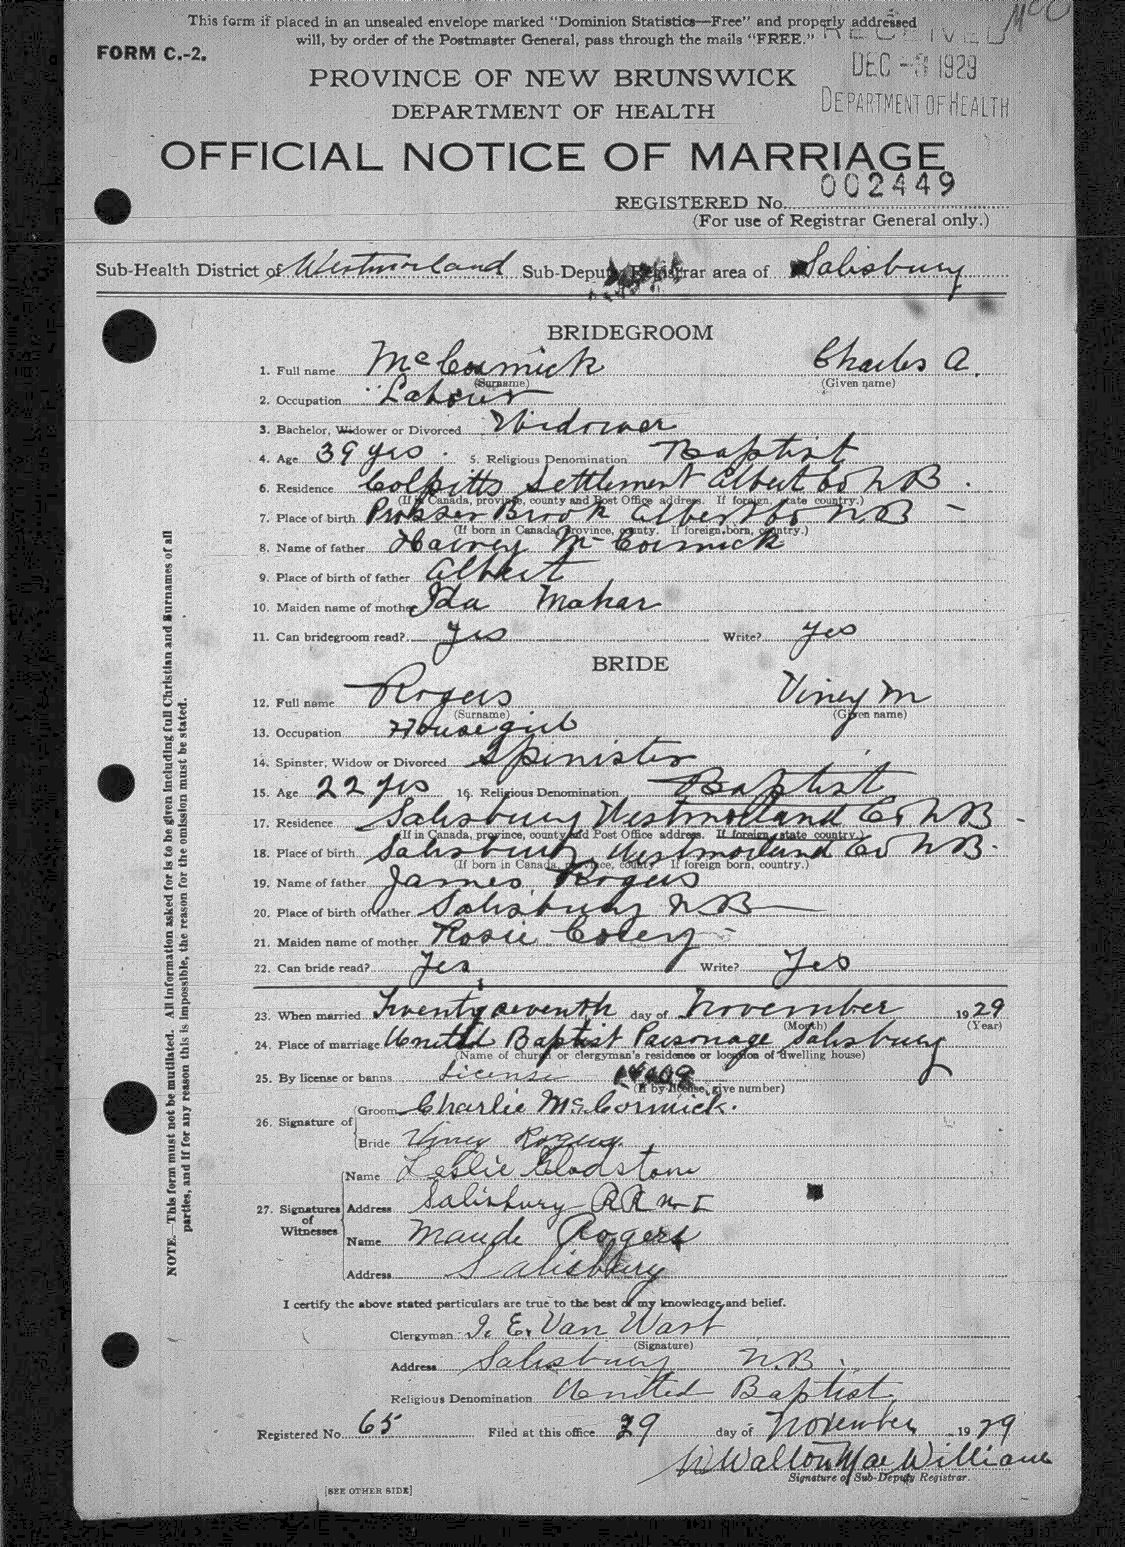 This form if placed in an unsealed envelope marked "Dominion Statistics—Free" and properly addressed
will, by order of the Postmaster General, pass through the mails "FREE."
FORM C.-2.
RECEIVED
DEC - 3 1929
DEPARTMENT OF HEALTH
PROVINCE OF NEW BRUNSWICK
DEPARTMENT OF HEALTH
OFFICIAL NOTICE OF MARRIAGE
002449
REGISTERED No.
(For use of Registrar General only.)
Sub-Health District of Westmorland Sub-Deputy Registrar area of Salisbury
BRIDEGROOM
1. Full name McCormick Charles A.
(Surname) (Given name)
2. Occupation Labourer
3. Bachelor, Widower or Divorced Widower
4. Age 39 yrs. 5. Religious Denomination Baptist
6. Residence Colpitts Settlement Albert Co N B.
(If in Canada, province, county and Post Office address. If foreign, state country.)
7. Place of birth Prosser Brook Albert Co N.B -
(If born in Canada, province, county. If foreign born, country.)
8. Name of father Harvey McCormick
9. Place of birth of father Albert
10. Maiden name of mother Ida Mahar
11. Can bridegroom read? Yes Write? Yes
BRIDE
12. Full name Rogers Viney M
(Surname) (Given name)
13. Occupation Housegirl
14. Spinster, Widow or Divorced Spinister
15. Age 22 yrs 16. Religious Denomination Baptist
17. Residence Salisbury Westmorland Co N B -
(If in Canada, province, county and Post Office address. If foreign, state country.)
18. Place of birth Salisbury, Westmorland Co NB.
(If born in Canada, province, county. If foreign born, country.)
19. Name of father James Rogers
20. Place of birth of father Salisbury N B
21. Maiden name of mother Rosie Corey -
22. Can bride read? Yes Write? Yes
23. When married Twenty seventh day of November 1929
(Month) (Year)
24. Place of marriage United Baptist Parsonage Salisbury
(Name of church or clergyman's residence or location of dwelling house)
25. By license or banns License
(If by license, give number)
26. Signature of
Groom Charlie McCormick.
Bride Viney Rogers.
27. Signatures of Witnesses
Name Leslie Gladstone
Address Salisbury RR
Name Maude Rogers
Address Salisbury
I certify the above stated particulars are true to the best of my knowledge and belief.
Clergyman I. E. Van Wart
(Signature)
Address Salisbury N.B.
Religious Denomination United Baptist
Registered No. 65 Filed at this office 29 day of November 1929
W Walton MacWilliams
Signature of Sub-Deputy Registrar.
[SEE OTHER SIDE]
NOTE.—This form must not be mutilated. All information asked for is to be given including full Christian and Surnames of all
parties, and if for any reason this is impossible, the reason for the omission must be stated.